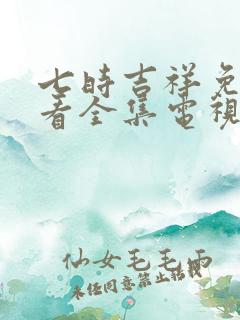 七時吉祥免
看全集電視
仙女毛毛雨
未經同意禁止轉載